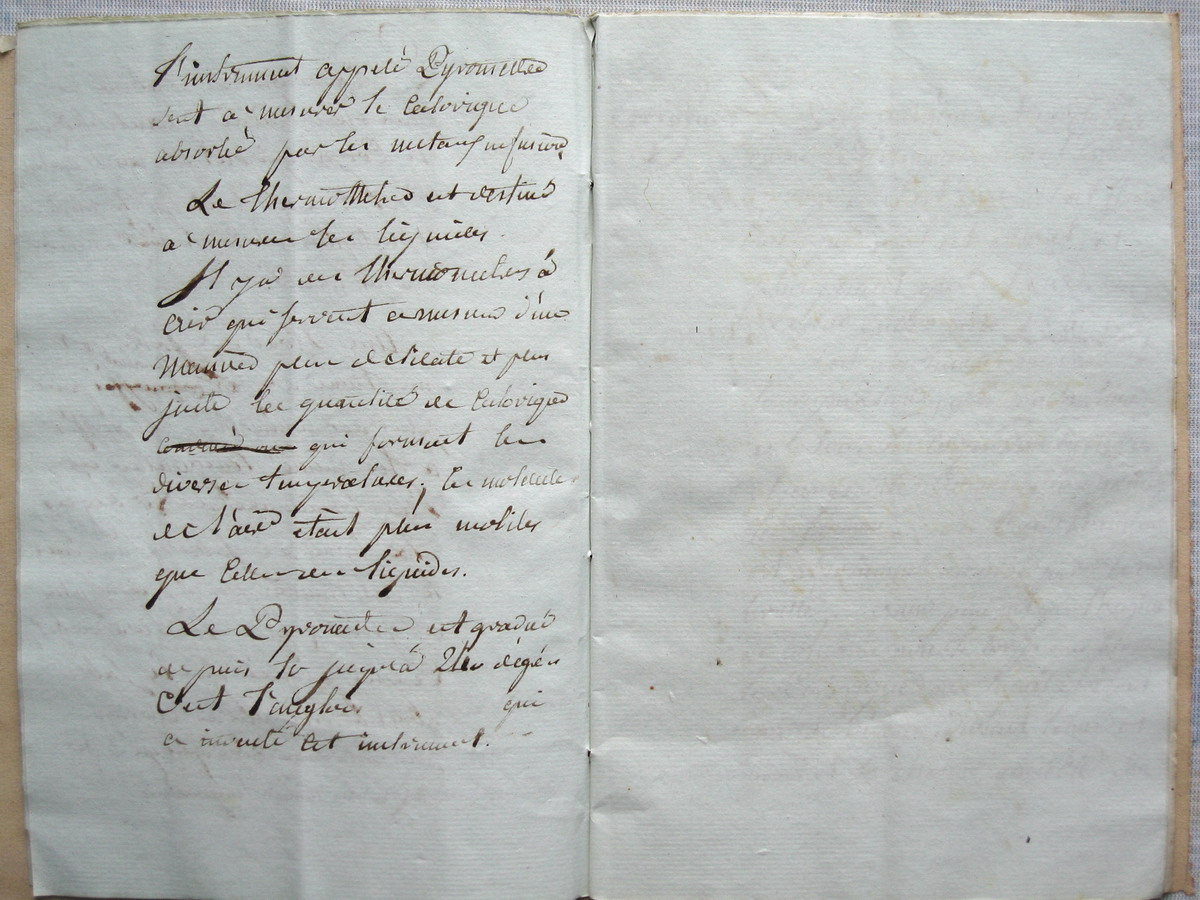 L'instrument appelé Pyromettre
sert a mesurer le Calorique
absorbé par les metaux en fusion,
Le thermomettre est destiné
a mesurer les liquides.
Il y a des thermometres à
air qui servent a mesurer d'une
maniere plus delicate et plus
juste les quantités de Calorique
qui forment les
diverses temperatures, les molecules
de l'air etant plus mobiles
que Celles des liquides.
Le Pyrometre est gradué
depuis 10 jusqu'à dégrés
C'est l'anglois qui
a inventé cet instrument.